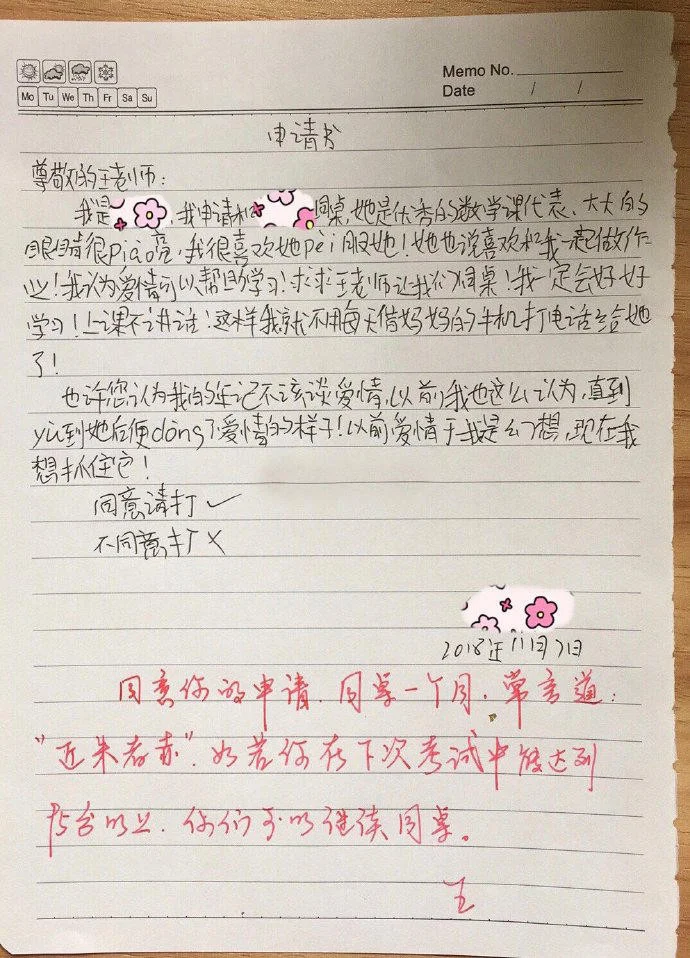 Memo No.
Mo Tu We Th Fr Sa Su
Date / /
申请书
尊敬的王老师:
我是,我申请和同桌,她是优秀的数学课代表、大大的
眼睛很piào亮,我很喜欢她pèi服她!她也说喜欢和我一起做作
业!我认为爱情可以帮助学习!求求王老师让我们同桌!我一定会好好
学习!上课不讲话!这样我就不用每天借妈妈的手机打电话给她
了!
也许您认为我的年记不该谈爱情,以前我也这么认为,直到
yù到她后便dǒng了爱情的样子!以前爱情于我是幻想,现在我
想抓住它!
同意请打✓
不同意打×
2018年11月7日
同意你的申请.同桌一个月.常言道:
"近朱者赤".如若你在下次考试中能达到
95分以上.你们可以继续同桌。
王